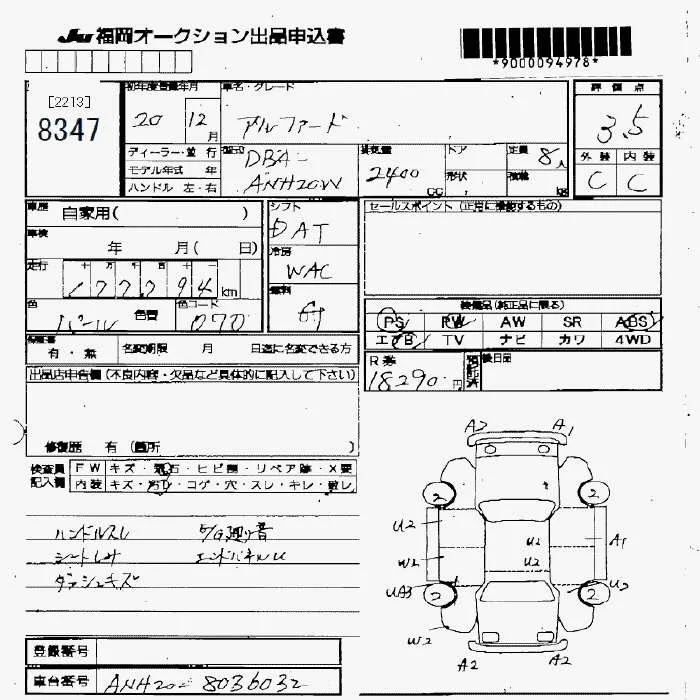 JU 福岡オークション出品申込書
*9000094978*
[2213]
8347
初年度登録年月
20 12月
車名・グレード
アルファード
評価点
3.5
外装 内装
C C
ディーラー・並行
モデル年式 年
ハンドル 左・右
型式
DBA-
ANH20W
排気量
2400
CC
ドア
形状
定員
8人
積載
kg
車歴
自家用( )
シフト
DAT
セールスポイント (正常に機能するもの)
車検
年 月( 日)
冷房
WAC
走行
十 万 千 百 十 一
177794 km
燃料
ガ
色
パール
色替
色コード
070
装備品(純正品に限る)
PS PW AW SR ABS
エアB TV ナビ カワ 4WD
保証書
有・無
名変期限 月 日迄に名変できる方
R券
18290円
預託済
後日品
出品店申告欄 (不良内容・欠品など具体的に記入して下さい)
修復歴 有 (箇所 )
検査員
記入欄
FW キズ・飛石・ヒビ割・リペア跡・X要
内装 キズ・汚れ・コゲ・穴・スレ・キレ・敷レ
ハンドルスレ
シートしみ エンドパネルU
ダッシュキズ
A2 A1
2 2
U2 U2 A1
W2 U2
UA3 2 2 U2
W2
A2 A2
登録番号
車台番号 ANH20-8036032